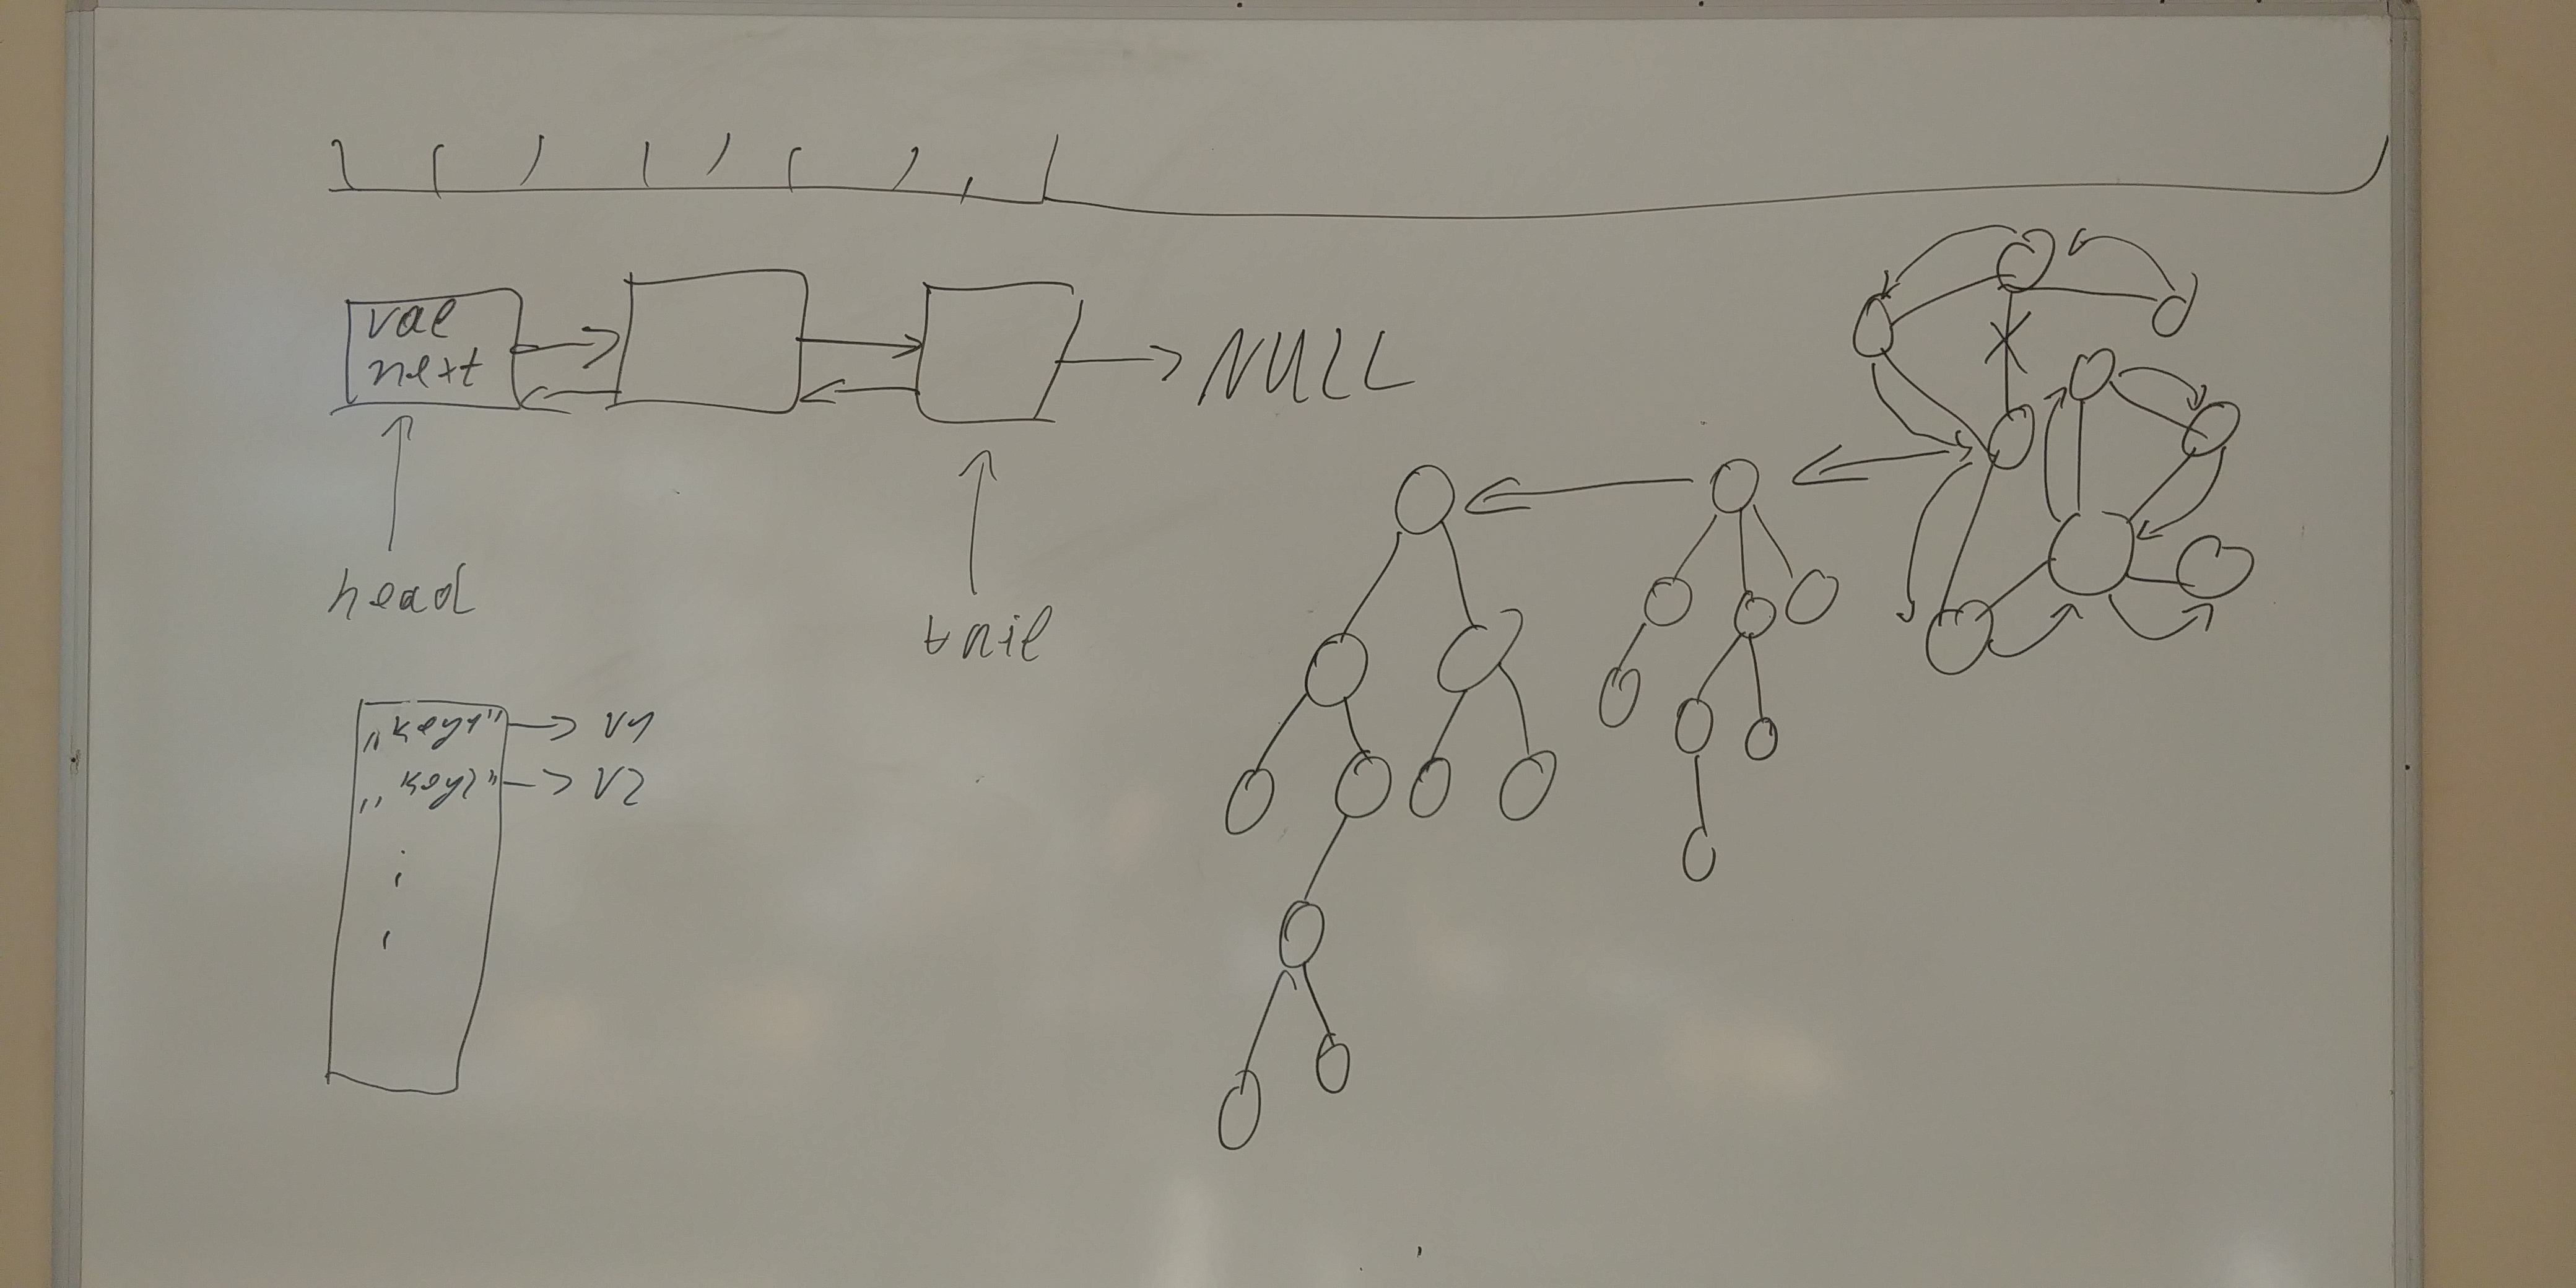 val
next
NULL
head
tail
„key1" → V1
„key2" → V2